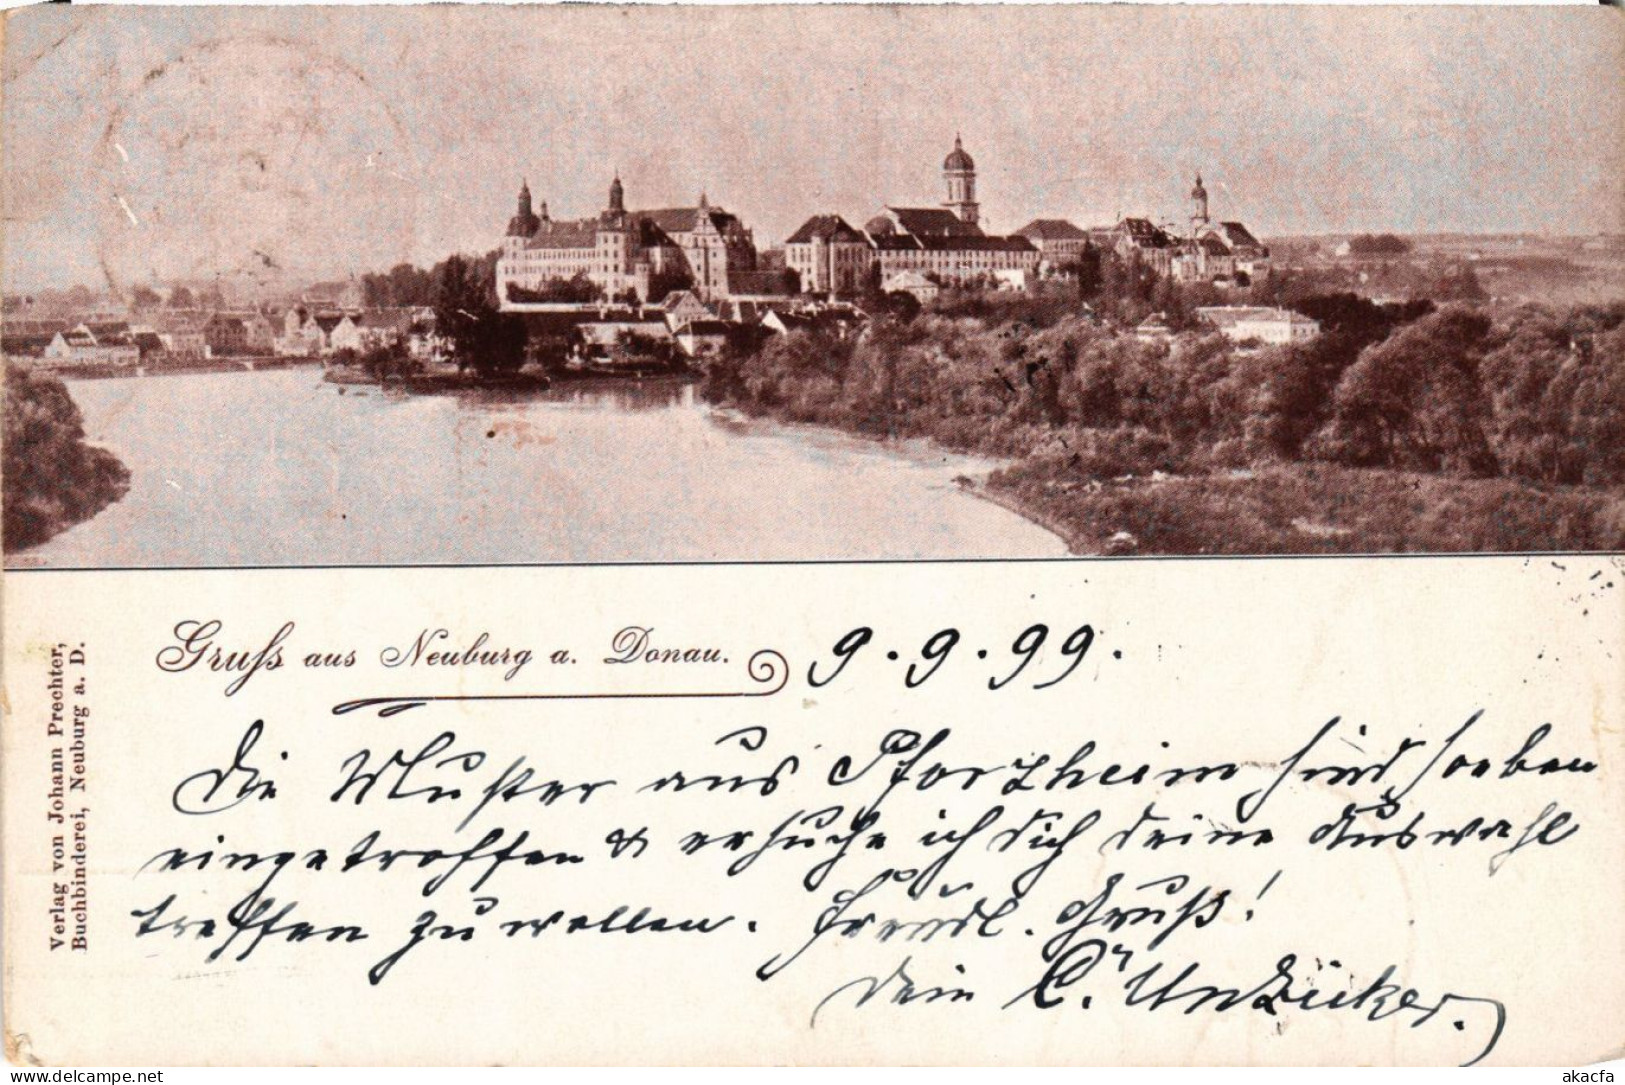 Gruss aus Neuburg a. Donau.
9.9.99.
Die Muster aus Pforzheim sind soeben
eingetroffen & ersuche ich dich deine Auswahl
treffen zu wollen. Freundl. Gruß!
Dein C. Unzücker.
Verlag von Johann Prechter,
Buchbinderei, Neuburg a. D.
delcampe.net
akacfa